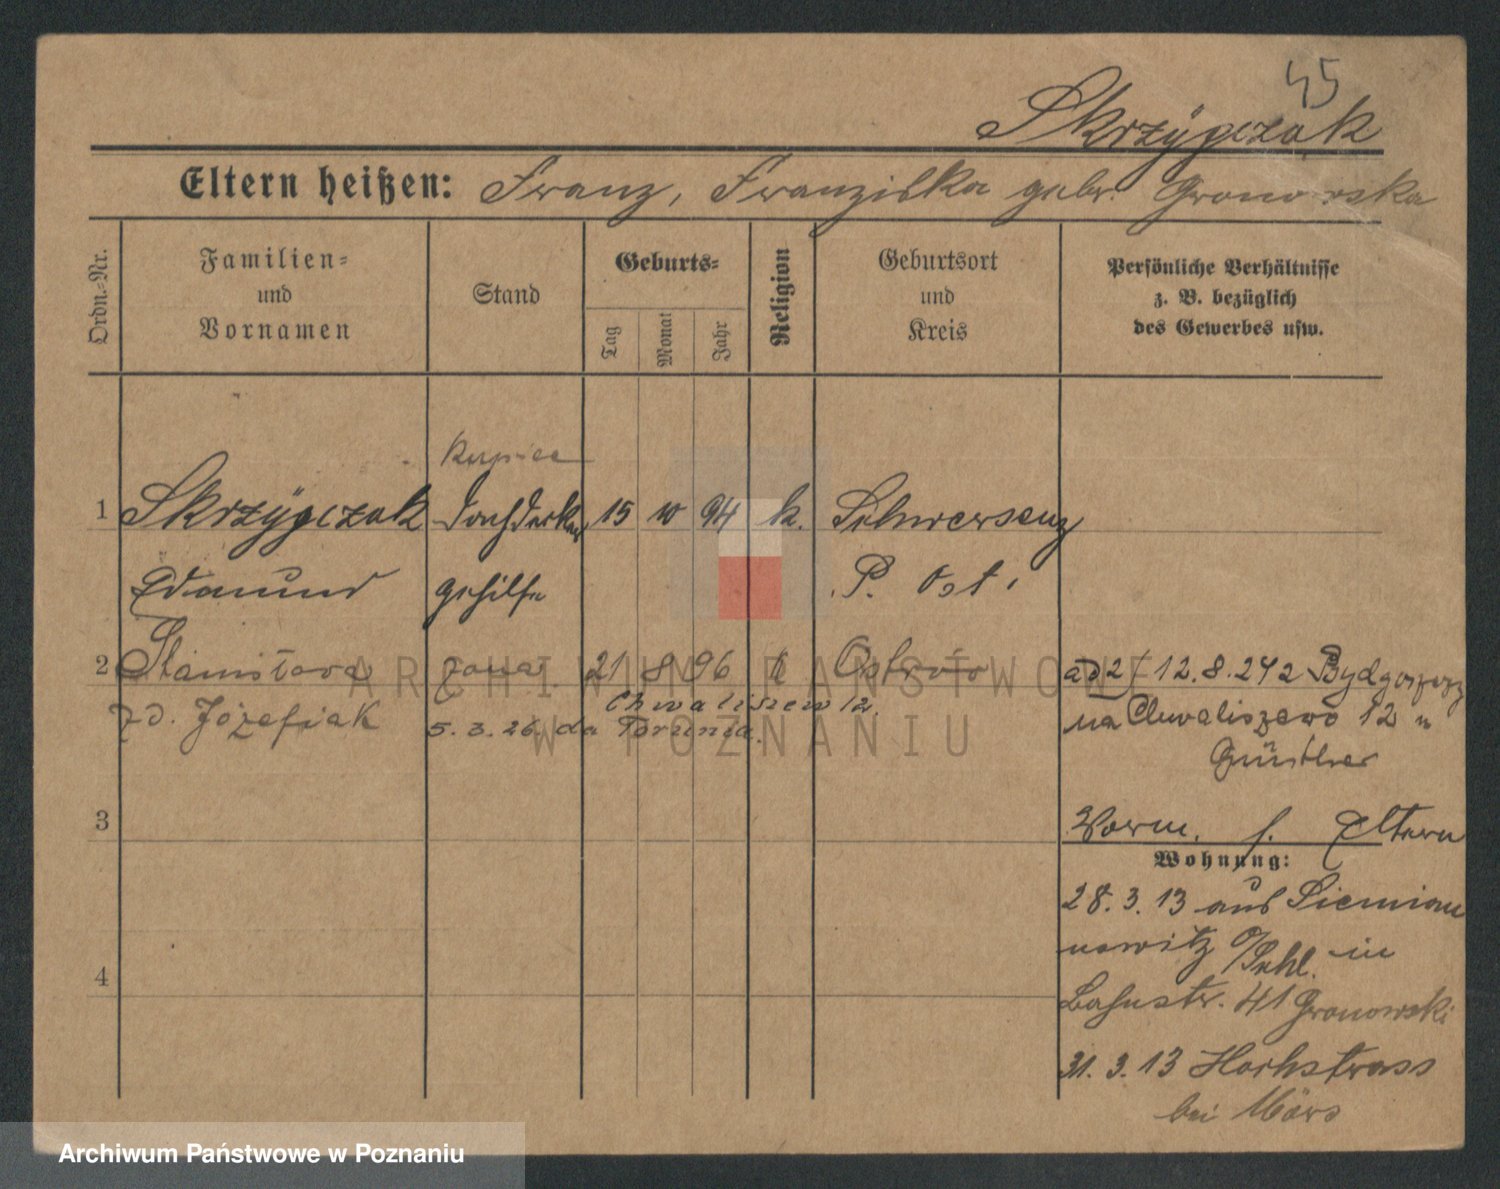 45
Skrzypczak
Eltern heißen: Franz, Franziska gebr. Gronowska
Ordn.-Nr.
Familien-
und
Vornamen
Stand
Geburts-
Tag
Monat
Jahr
Religion
Geburtsort
und
Kreis
Persönliche Verhältnisse
z. B. bezüglich
des Gewerbes usw.
kupiec
1 Skrzypczak Dachdecker 15 10 94 k. Schwersenz
Edmund gehilfe P. Ost.
2 Stanisława żona 21 8 96 k Ostrów
zd. Józefiak
Chwaliszewo 12.
5. 3. 26. do Torunia.
ad 2/ 12.8.24 z Bydgoszczy
na Chwaliszewo 12 u
Günther
3
Vorm. s. Eltern
Wohnung:
28. 3. 13 aus Siemian
nowitz O/Schl. in
Bahnstr. 41 Gronowski
4
31. 3. 13 Hochstrass
bei Mörs
ARCHIWUM PAŃSTWOWE
W POZNANIU
Archiwum Państwowe w Poznaniu